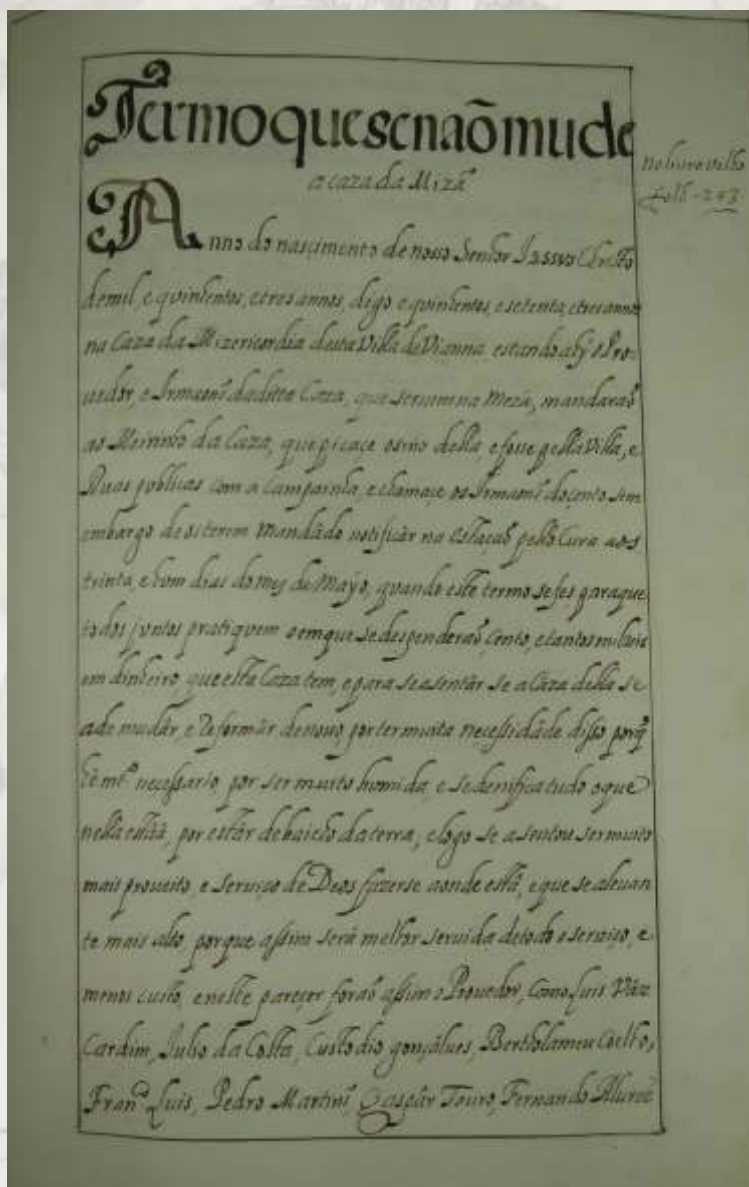 Termo que se naõ mude
a caza da Mizª
no liuro velho
folh - 243
Anno do nascimento de nosso Senhor Iessus Christo
de mil, e quinhentos, e tres annos, digo e quinhentos, e setenta, e tres annos
na Caza da Mizericordia desta Villa de Vianna estando ahy o Pro-
uedor, e Irmaons da ditta Caza, que seruem na Meza, mandaraõ
ao Meirinho da Caza, que picace o sino della e fosse pella Villa, e
Ruas publicas com a Campainha, e chamace os Irmaons do cento sem
embargo de os terem mandádo notificár na Estaçaõ pello Cura aos
trinta, e hum dias do mes de Mayo, quando este termo se fes para que
todos juntos pratiquem o em que se despenderaõ, Cento, e tantos mil reis
em dinheiro, que esta Caza tem, e para se asentár se a Caza della se
ade mudár, e Reformár de nouo, por ter muita necessidáde disso porq̃
hé mtº necessario, por ser muito homida, e se denifica tudo o que
nella está, por estár debaicho da terra, e logo se asentou ser muito
mais proueito, e seruiço de Deos fazerse aonde está, e que se aleuan
te mais alto, porque assim será melhor seruida de todo o seruiço, e
menos custo, e neste pareçer foraõ assim o Prouedor, Como Luis Váz
Cardim, Julio da Costa, Custodio gonçálues, Bertholameu Coelho,
Franᶜᵒ Luis, Pedro Martins, Gaspár Touro, Fernando Aluréz